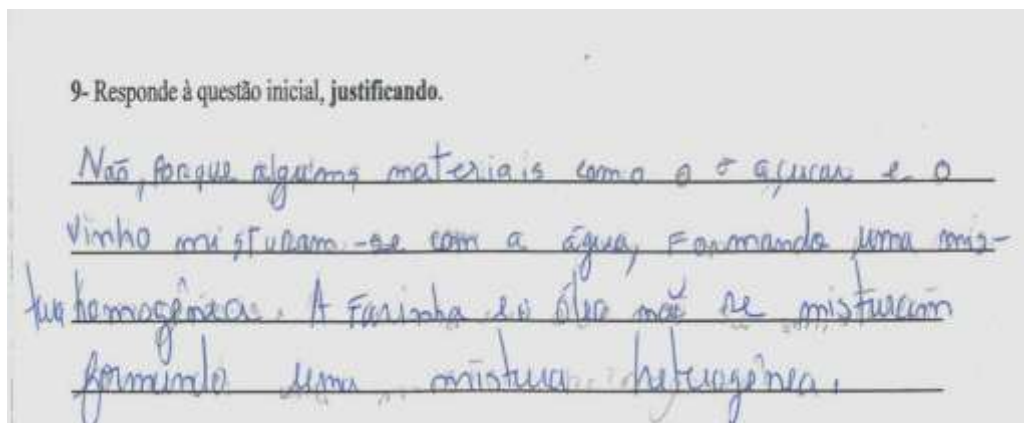 9- Responde à questão inicial, justificando.
Não, porque alguns materiais como o o açucar e o
vinho misturam-se com a água, Formando uma mis-
tua homogénea. A Farinha e o óleo não se misturam
formando uma mistura heterogénea.